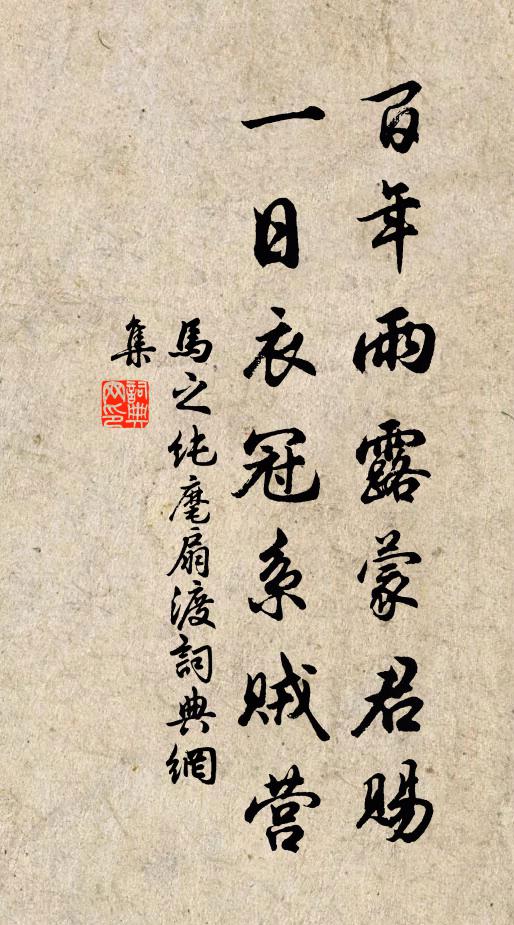 百年雨露蒙君賜
一日衣冠系賊营
馬之純麾扇渡詞典網
集
詞典網印